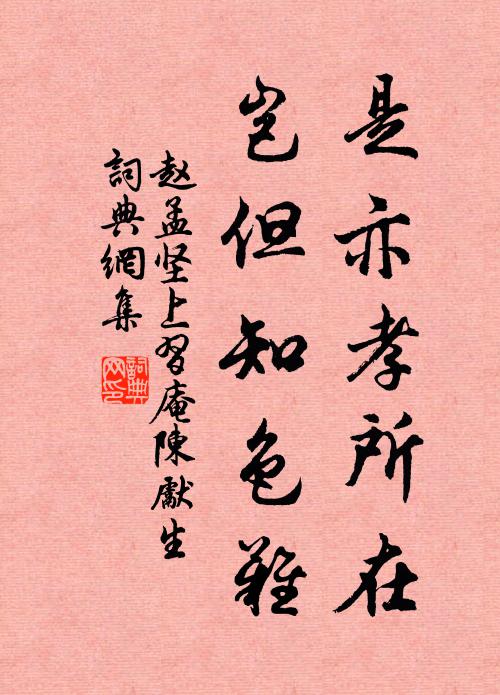 是亦孝所在
岂但知色難
赵孟坚上習庵陳獻生
詞典網集
詞典
网印